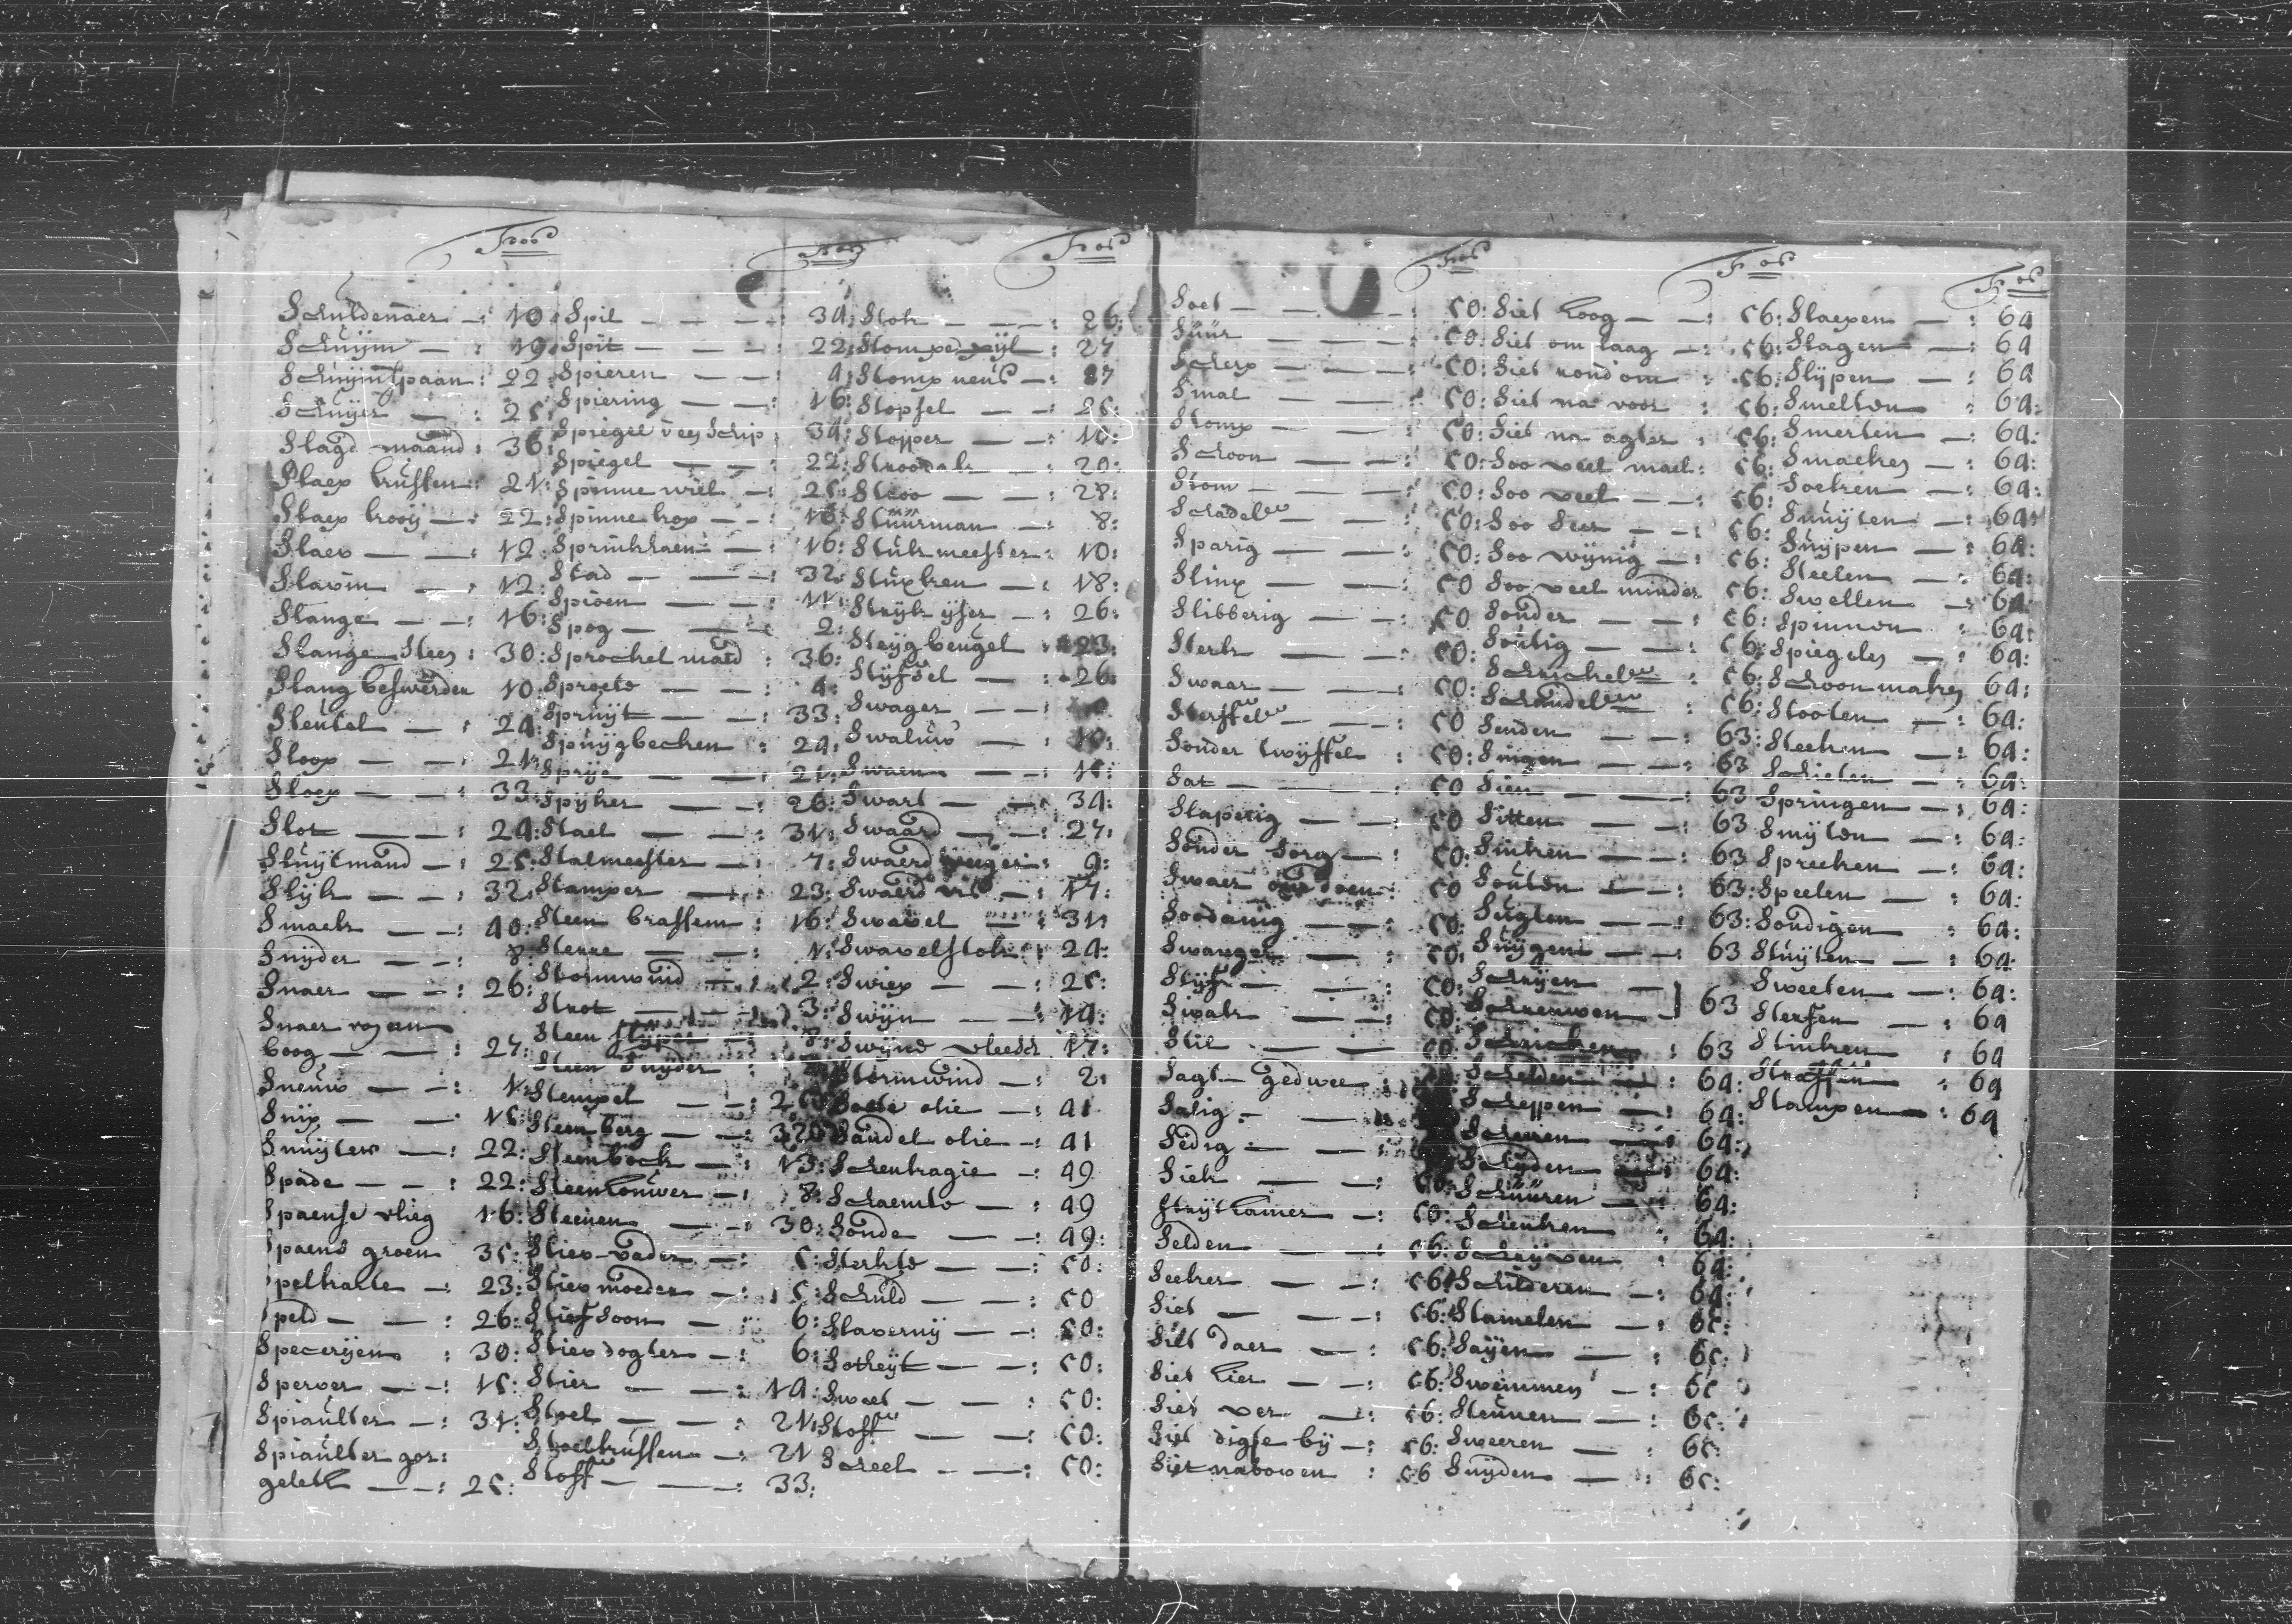 Fos
Schuldenaer — : 10:
Schuijm — : 19:
Schuijmspaan : 22:
Schuijer — : 25:
Slagd maand : 36:
Slaep kussen : 21:
Slaep kooij — : 22:
Slaev — — : 12:
Slavin — : 12:
Slange — — : 16:
Slange Steen : 30:
Slang beswerder 10
Sleutel — : 24:
Sloop — — : 21:
Sloep — — : 33:
Slot — — : 24:
Sluijtmand — : 25:
Slijk — — : 32:
Smaek — — : 40:
Snijder — — : 8:
Snaer — — : 26:
Snaer
boog — — : 27:
Sneuw — — : 1:
Snip — — 15:
Snuijter — : 22:
Spade — — : 22:
Spaense vlieg 16:
Spaens groen 35:
Speelkaerte — : 23:
Speld — — : 26:
Specerijen : 30:
Sperver — — : 15:
Spiaulter — : 31:
Spiaulter gor:
gelett — — : 25:
Fos
Spil — — — : 34:
Spit — — — : 22:
Spieren — — : 4:
Spiering — — : 16:
Spiegel v een Schip : 34:
Spiegel — — : 22:
Spinne wiel — : 25:
Spinne kop — — : 16:
Sprinkhaen — : 16:
Stad — — — : 32:
Spioen — — : 11:
Spog — — — : 2:
Sprockel maed : 36:
Sproete — — : 4:
Spruijt — — : 33:
Spuijgbecken : 24:
Sprije — — : 21:
Spijker — — : 26:
Stael — — : 31:
Stalmeester — : 7:
Stamper — — : 23:
Steen brassem : 16:
Sterre — — : 1:
Stormwind — : 2:
Strot — — : 3:
Steen slijper — : 8:
Steen snijder :
Stempel — — :
Steenberg — — :
Steenbock — : 13:
Steenhouwer — : 8:
Steenen — — : 30:
Stiev-vader — : 5:
Stiev moeder — : 5:
Stiefsoon — : 6:
Stiev dogter — : 6:
Stier — — : 14:
Stoel — — : 21:
Stoelkussen — : 21
Stoff — — : 33:
Fos
Stok — — — : 26:
Stompe pijl — : 27
Stomp neus — : 27
Stopsel — — : 25:
Stopper — — : 10:
Stroodak — : 20:
Stroo — — : 28:
Stüürman — : 8:
Stukmeester : 10:
Stuxken — : 18:
Strijk ijser — : 26:
Steijgbeugel : 23:
Stijfsel — : 26:
Swager — — :
Swaluw — : 15:
Swaen — — : 15:
Swart — — : 34:
Swaard — — : 27:
Swaerd veeger : 9:
Swaerd vis — : 17:
Swavel — : 31:
Swavelstok : 24:
Swiep — — : 25:
Swijn — — : 14:
Swijns vleesch 17:
Stormwind — : 2:
olie — : 41
Sandel olie — : 41
Schenkagie — : 49
Schaemte — : 49
Sonde — — : 49:
Sterkte — — : 50:
Schuld — — : 50
Slavernij — — : 50:
Sotheijt — — : 50:
Sweet — — : 50:
Stoff — — : 50:
Scheel — — : 50:
Fos
Soet — — — : 50:
Süür — — — : 50:
Scherp — — — : 50:
Smal — — — : 50:
Stomp — — — : 50:
Schoon — — : 50:
Stom — — — : 50:
Schadel — — : 50:
Sparig — — : 50:
Slinx — — : 50
Slibberig — — : 50
Sterk — — : 50:
Swaar — — — : 50:
Sterffel — — : 50
Sonder twijffel : 50:
Sat — — — : 50
Slaperig — — : 50
Sonder Sorg — : 50:
Swaer doen : 50
Soodanig — — : 50:
Swanger — : 50:
Stijf — — : 50:
Swak — — : 50:
Stil — — 50:
Sagt — gedwee :
Salig — — :
Sedig — — :
Siek — — : 50:
Strijthamer — : 50:
Selden — — : 56:
Seeker — — : 56:
Siet — — : 56:
Siet daer — : 56:
Siet hier — — : 56:
Siet ver — : 56:
Siet digte bij — : 56:
Siet naboven : 56
Fos
Siet hoog — — : 56:
Siet om laag — : 56:
Siet rondom : 56:
Siet na voor : 56:
Siet na agter : 56:
Soo veel mael : 56:
Soo veel — — : 56:
Soo Seer — — : 56:
Soo wijnig — : 56:
Soo veel minder 56:
Sonder — — : 56:
Soutig — — : 56:
Schrickel : 56:
Schandel : 56:
Senden — — : 63:
Singen — — : 63
Sien — — : 63
Sitten — — : 63
Sinken — — : 63
Souten — — : 63:
Sugten — — : 63:
Suijgen — — : 63
Schijen —
Schreuwen — } 63
Schricken : 63
Schelden — : 64:
Scheppen — : 64:
Scheeren — : 64:
Schijden — : 64:
Schüüren — : 64:
Schenken : 64:
Schrijven : 64:
Schilderen — : 64:
Stamelen — : 65:
Saijen — : 65:
Swemmen — : 65
Steunen — : 65:
Sweeren — : 65:
Snijden — : 65:
Fos
Slaepen — : 64
Slagen — : 64
Slijpen — : 64
Smelten : 64:
Smerten — : 64:
Smaeken — : 64:
Soeken — : 64:
Snuijten — : 64:
Suijpen — : 64:
Steelen — : 64:
Swellen — : 64:
Spinnen : 64:
Spiegelen — : 64:
Schoonmaken 64:
Stooten — : 64:
Steeken — : 64:
Schieten — : 64:
Springen — : 64:
Smijten — : 64:
Spreeken — : 64:
Speelen — : 64:
Sondigen : 64:
Sluijten — : 64:
Sweeten — : 64:
Sterfen — : 64
Stinken : 64
Straffen : 64
Stampen — : 64